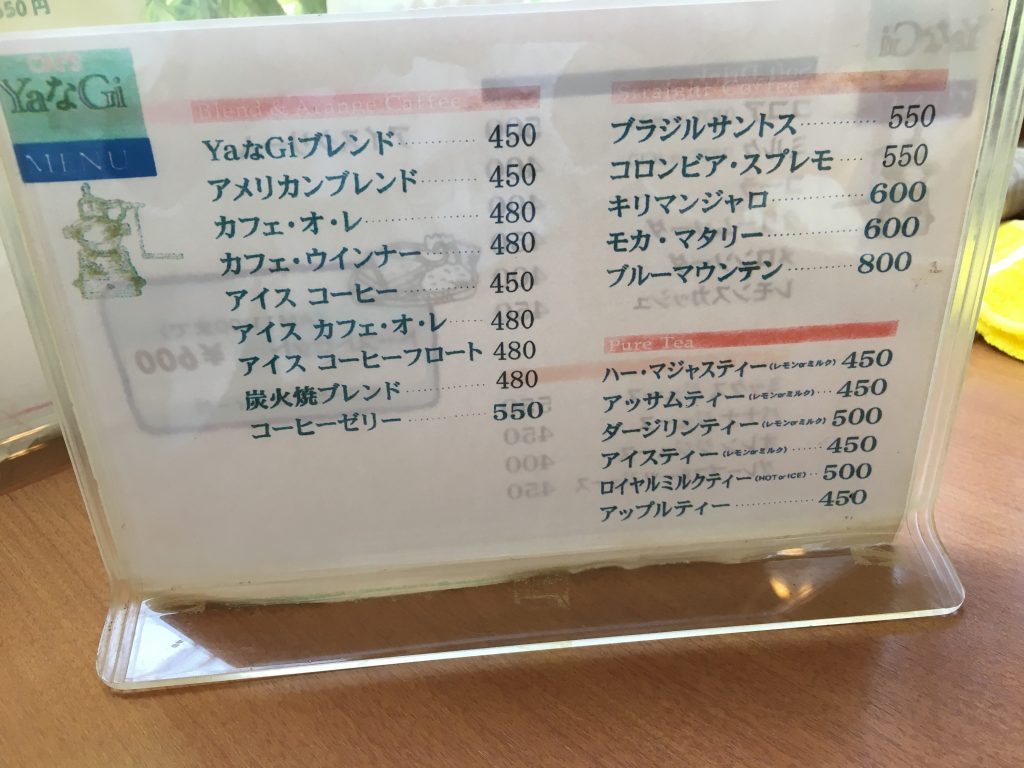 50円
CAFE
YaなGi
MENU
Blend & Arange Coffee
YaなGiブレンド 450
アメリカンブレンド 450
カフェ・オ・レ 480
カフェ・ウインナー 480
アイス コーヒー 450
アイス カフェ・オ・レ 480
アイス コーヒーフロート 480
炭火焼ブレンド 480
コーヒーゼリー 550
Straight Coffee
ブラジルサントス 550
コロンビア・スプレモ 550
キリマンジャロ 600
モカ・マタリー 600
ブルーマウンテン 800
Pure Tea
ハー・マジャスティー(レモンorミルク) 450
アッサムティー(レモンorミルク) 450
ダージリンティー(レモンorミルク) 500
アイスティー(レモンorミルク) 450
ロイヤルミルクティー(HOT or ICE) 500
アップルティー 450